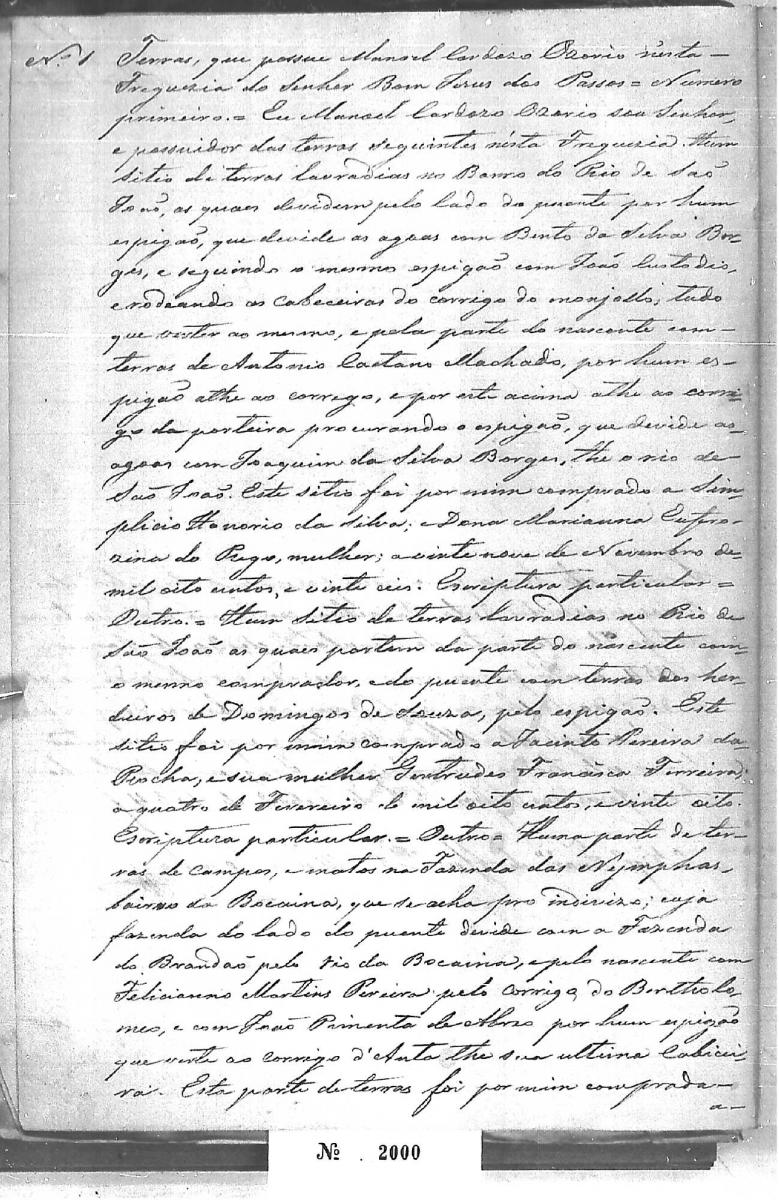 Nº 1 Terras, que possue Manoel Cardozo Ozorio n'esta
Freguezia do Senhor Bom Jezus dos Passos = Numero
primeiro. = Eu Manoel Cardozo Ozorio sou Senhor,
e possuidor das terras seguintes nésta Freguezia. Hum
sitio de terras lavradias no Barro do Rio de São
João, as quaes devidem pelo lado do puente por hum
espigão, que devide as agoas com Bento da Silva Bor-
ges, e seguindo o mesmo espigão com João Custodio,
e rodeando as cabeceiras do corrigo do monjollo, tudo
que verter ao mesmo, e pela parte do nascente com
terras de Antonio Caetano Machado, por hum es-
pigão athe ao corrego, e por este acima athe ao corri-
go da porteira procurando o espigão, que devide as
agoas com Joaquim da Silva Borges, the o rio de
São João. Este sitio foi por mim comprado a Sim-
plicio Honorio da Silva; e Dona Marianna Eufro-
zina do Rego, mulher; a vinte nove de Novembro de
mil oito centos, e vinte seis. Escriptura particular =
Outro. = Hum sitio de terras lavradias no Rio de
São João as quaes partem da parte do nascente com
o mesmo comprador, e do puente com terras dos her-
deiros de Domingos de Souza, pelo espigão. Este
sitio foi por mim comprado a Jacinto Pereira da
Rocha, e sua mulher Gertrudes Francisca Ferreira;
a quatro de Fevereiro de mil oito centos, e vinte oito.
Escriptura particular. = Outro = Huma parte de ter-
ras de campos, e matos na Fazenda das Nymphas,
bairro da Bocaina, que se acha pro indivizo; cuja
fazenda do lado do puente devide com a Fazenda
do Brandaõ pelo rio da Bocaina, e pelo nascente com
Felicianno Martins Pereira pelo Corrigo do Bertholo-
meo, e com João Pimenta de Abreo por hum espigão
que verte ao corrigo d'Anta the sua ultima Cabicei-
ra. Esta parte de terras foi por mim comprada
a
Nº . 2000